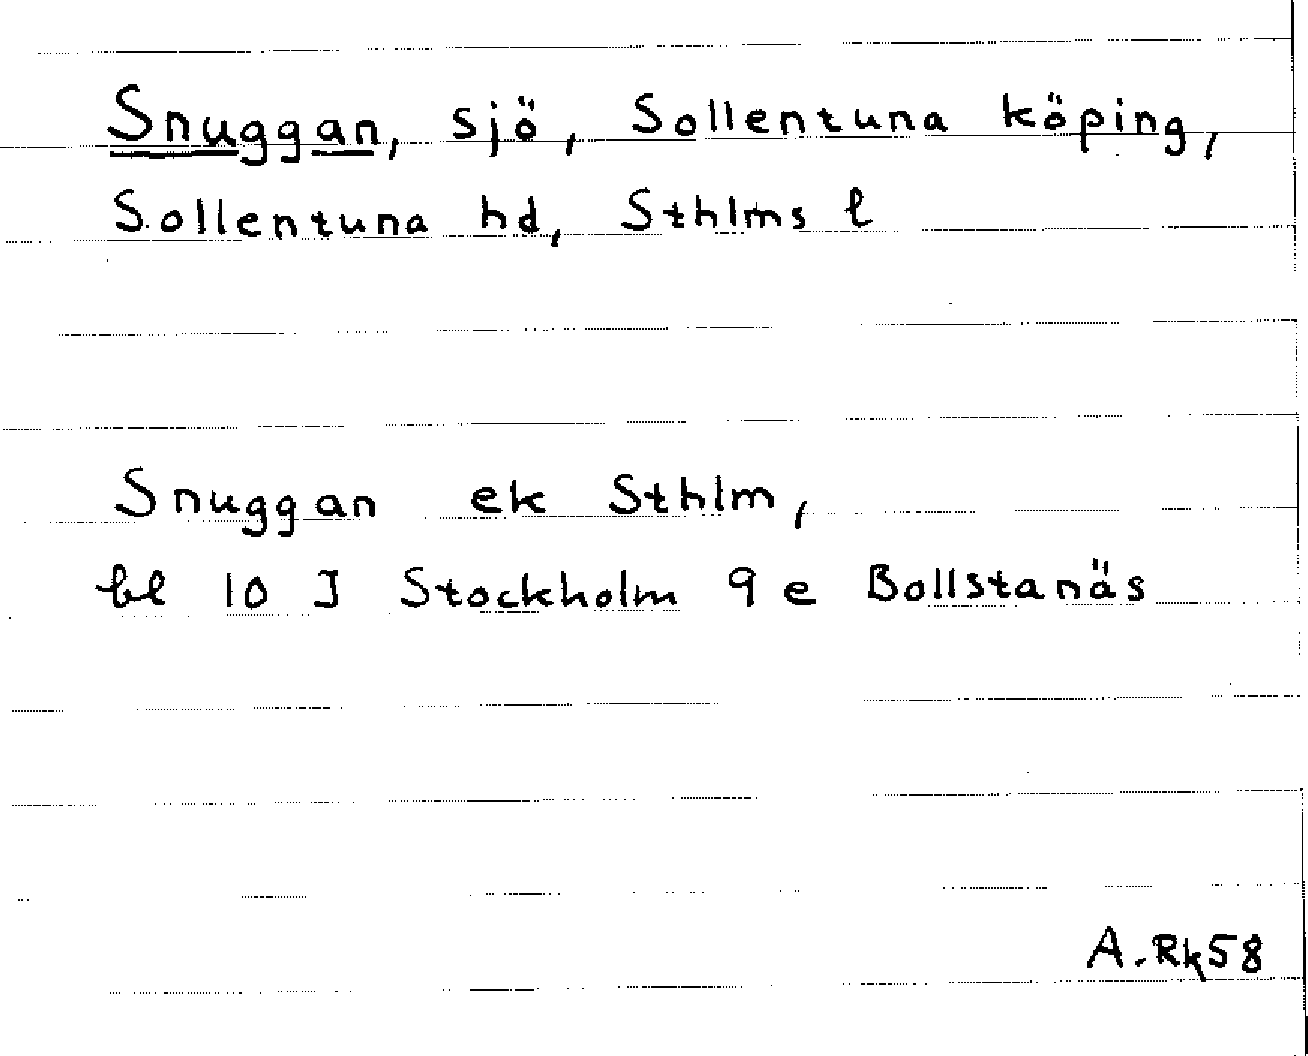 Snuggan, sjö, Sollentuna köping,
Sollentuna hd, Sthlms l
Snuggan ek Sthlm,
bl 10 I Stockholm 9 e Bollstanäs
A. Rk 58